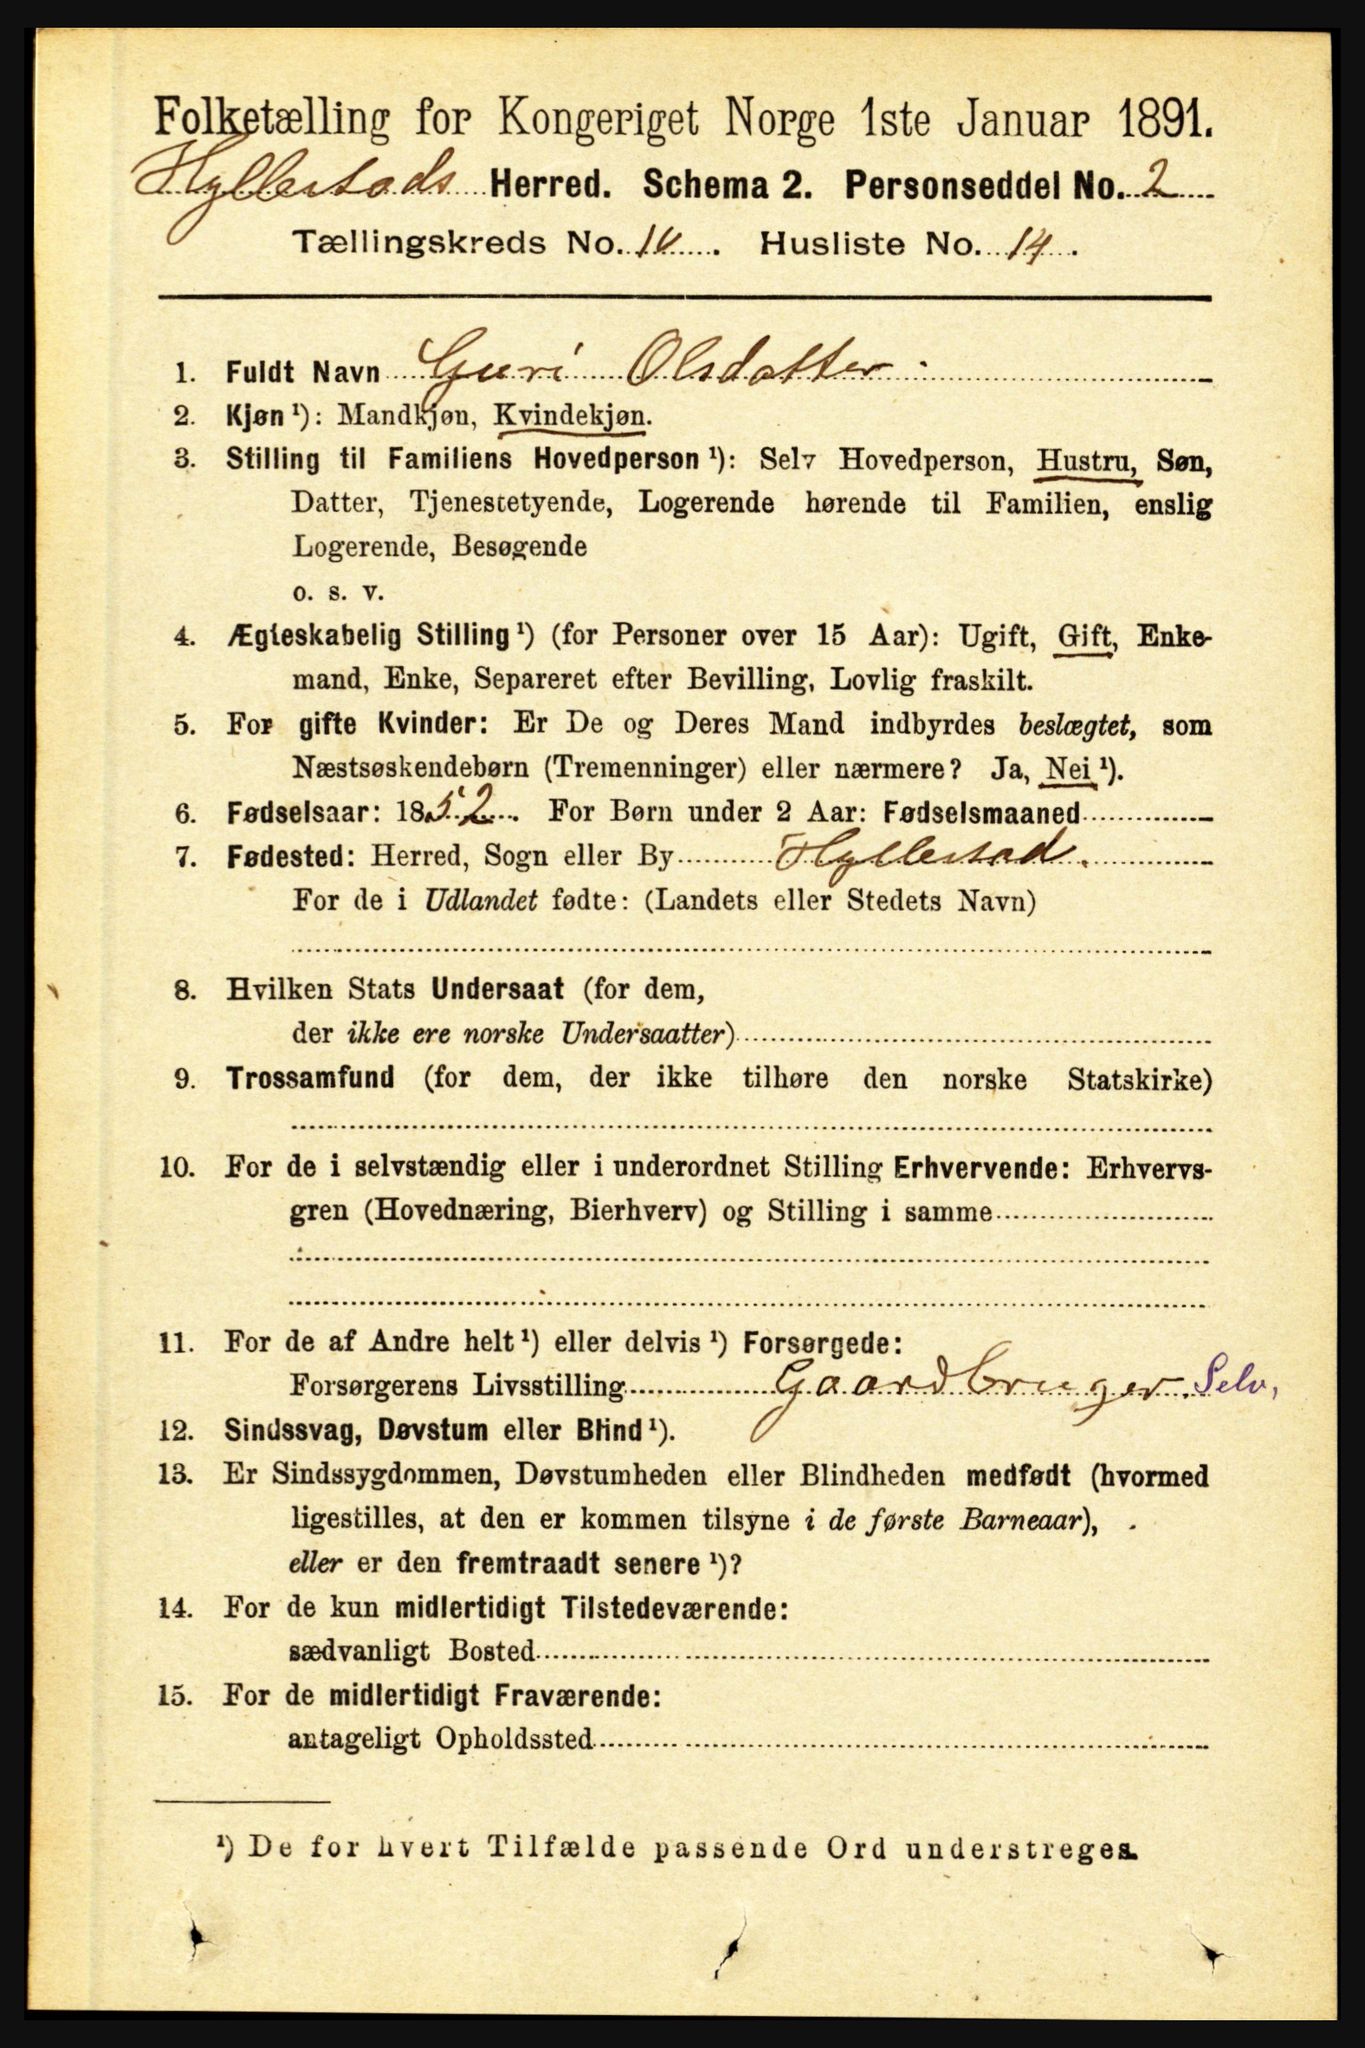 Folketælling for Kongeriget Norge 1ste Januar 1891.
Hyllestads Herred. Schema 2. Personseddel No. 2
Tællingskreds No. 10. Husliste No. 14.
1. Fuldt Navn Guri Olsdatter
2. Kjøn ¹): Mandkjøn, Kvindekjøn.
3. Stilling til Familiens Hovedperson ¹): Selv Hovedperson, Hustru, Søn,
Datter, Tjenestetyende, Logerende hørende til Familien, enslig
Logerende, Besøgende
o. s. v.
4. Ægteskabelig Stilling ¹) (for Personer over 15 Aar): Ugift, Gift, Enke-
mand, Enke, Separeret efter Bevilling, Lovlig fraskilt.
5. For gifte Kvinder: Er De og Deres Mand indbyrdes beslægtet, som
Næstsøskendebørn (Tremenninger) eller nærmere? Ja, Nei ¹).
6. Fødselsaar: 1852. For Børn under 2 Aar: Fødselsmaaned
7. Fødested: Herred, Sogn eller By Hyllestad.
For de i Udlandet fødte: (Landets eller Stedets Navn)
8. Hvilken Stats Undersaat (for dem,
der ikke ere norske Undersaatter)
9. Trossamfund (for dem, der ikke tilhøre den norske Statskirke)
10. For de i selvstændig eller i underordnet Stilling Erhvervende: Erhvervs-
gren (Hovednæring, Bierhverv) og Stilling i samme
11. For de af Andre helt ¹) eller delvis ¹) Forsørgede:
Forsørgerens Livsstilling Gaardbruger. Selv,
12. Sindssvag, Døvstum eller Blind ¹).
13. Er Sindssygdommen, Døvstumheden eller Blindheden medfødt (hvormed
ligestilles, at den er kommen tilsyne i de første Barneaar),
eller er den fremtraadt senere ¹)?
14. For de kun midlertidigt Tilstedeværende:
sædvanligt Bosted
15. For de midlertidigt Fraværende:
antageligt Opholdssted
¹) De for hvert Tilfælde passende Ord understreges.